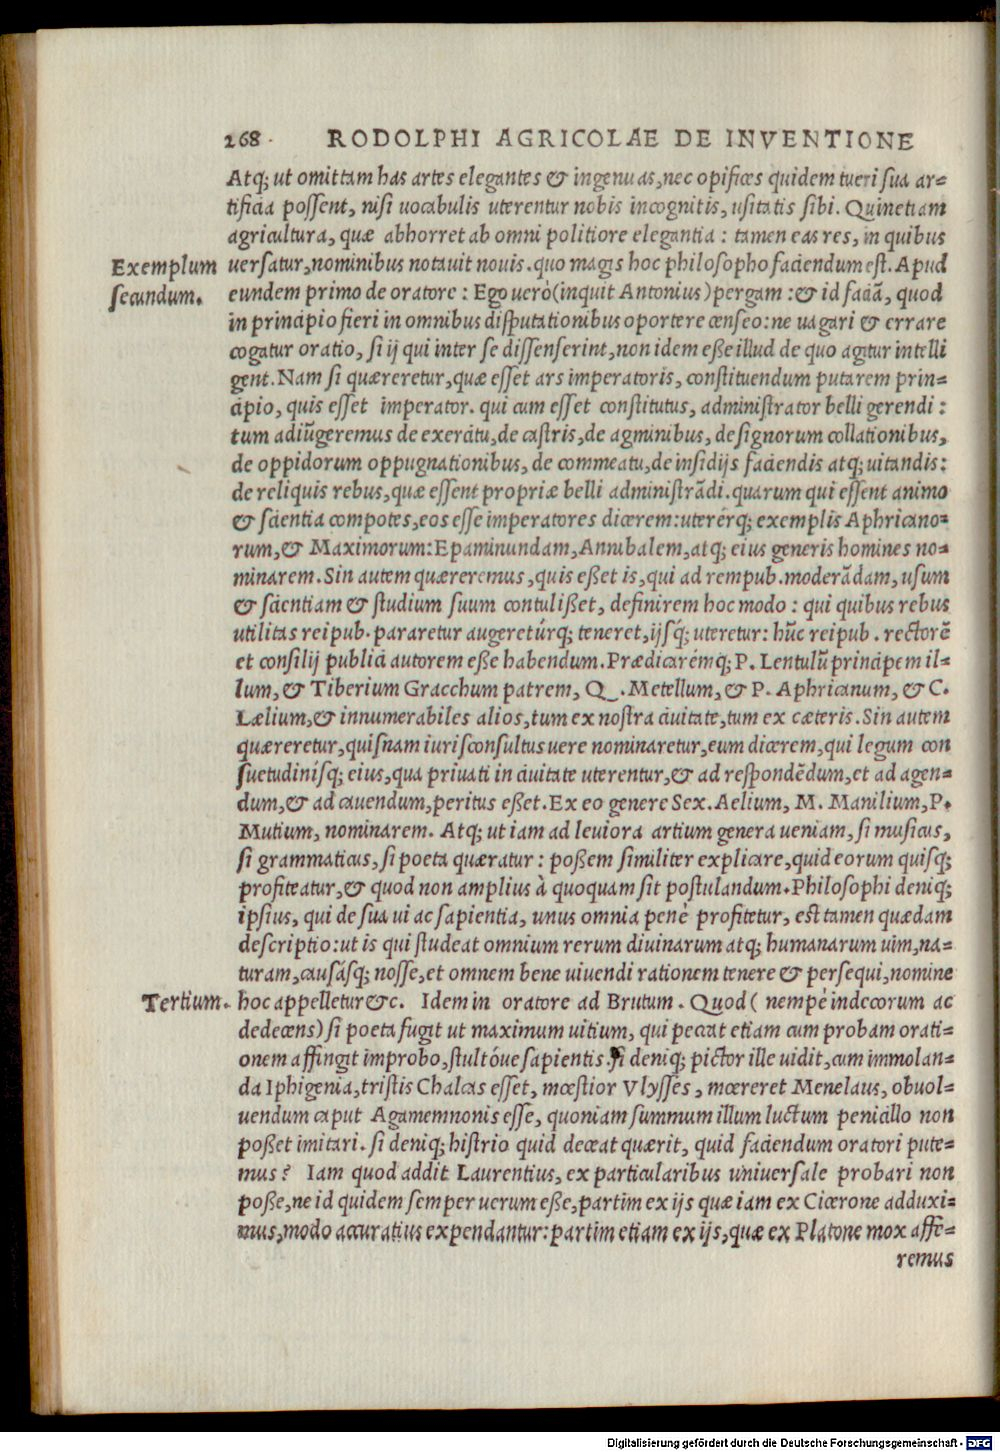 268. RODOLPHI AGRICOLAE DE INVENTIONE
Atq; ut omittam has artes elegantes & ingenuas, nec opifices quidem tueri sua ar=
tificia possent, nisi uocabulis uterentur nobis incognitis, usitatis sibi. Quinetiam
agricultura, quæ abhorret ab omni politiore elegantia : tamen eas res, in quibus
Exemplum uersatur, nominibus notauit nouis. quo magis hoc philosopho faciendum est. Apud
secundum. eundem primo de oratore : Ego uerò (inquit Antonius) pergam : & id faciã, quod
in principio fieri in omnibus disputationibus oportere censeo: ne uagari & errare
cogatur oratio, si ij qui inter se dissenserint, non idem eße illud de quo agitur intelli
gent. Nam si quæreretur, quæ esset ars imperatoris, constituendum putarem prin=
cipio, quis esset imperator. qui cum esset constitutus, administrator belli gerendi :
tum adiũgeremus de exercitu, de castris, de agminibus, de signorum collationibus,
de oppidorum oppugnationibus, de commeatu, de insidijs faciendis atq; uitandis:
de reliquis rebus, quæ essent propriæ belli administrãdi. quarum qui essent animo
& scientia compotes, eos esse imperatores dicerem: uterérq; exemplis Aphricano=
rum, & Maximorum: Epaminundam, Annibalem, atq; eius generis homines no=
minarem. Sin autem quæreremus, quis eßet is, qui ad rempub. moderãdam, usum
& scientiam & studium suum contulißet, definirem hoc modo : qui quibus rebus
utilitas reipub. pararetur augeretúrq; teneret, ijsq́; uteretur: hũc reipub. rectorẽ
et consilij publici autorem eße habendum. Prædicarémq; P. Lentulũ principem il=
lum, & Tiberium Gracchum patrem, Q. Metellum, & P. Aphricanum, & C.
Lælium, & innumerabiles alios, tum ex nostra ciuitate, tum ex cæteris. Sin autem
quæreretur, quisnam iurisconsultus uere nominaretur, eum dicerem, qui legum con
suetudinísq; eius, qua priuati in ciuitate uterentur, & ad respondẽdum, et ad agen=
dum, & ad cauendum, peritus eßet. Ex eo genere Sex. Aelium, M. Manilium, P.
Mutium, nominarem. Atq; ut iam ad leuiora artium genera ueniam, si musicus,
si grammaticus, si poeta quæratur : poßem similiter explicare, quid eorum quisq;
profiteatur, & quod non amplius à quoquam sit postulandum. Philosophi deniq;
ipsius, qui de sua ui ac sapientia, unus omnia penè profitetur, est tamen quædam
descriptio: ut is qui studeat omnium rerum diuinarum atq; humanarum uim, na=
turam, causásq; nosse, et omnem bene uiuendi rationem tenere & persequi, nomine
Tertium. hoc appelletur &c. Idem in oratore ad Brutum. Quod ( nempè indecorum ac
dedecens) si poeta fugit ut maximum uitium, qui peccat etiam cum probam orati=
onem affingit improbo, stultóue sapientis. si deniq; pictor ille uidit, cum immolan=
da Iphigenia, tristis Chalcas esset, mœstior Vlysses, mœreret Menelaus, obuol=
uendum caput Agamemnonis esse, quoniam summum illum luctum penicillo non
poßet imitari. si deniq; histrio quid deceat quærit, quid faciendum oratori pute=
mus? Iam quod addit Laurentius, ex particularibus uniuersale probari non
poße, ne id quidem semper uerum eße, partim ex ijs quæ iam ex Cicerone adduxi=
mus, modo accuratius expendantur: partim etiam ex ijs, quæ ex Platone mox affe=
remus
Digitalisierung gefördert durch die Deutsche Forschungsgemeinschaft - DFG